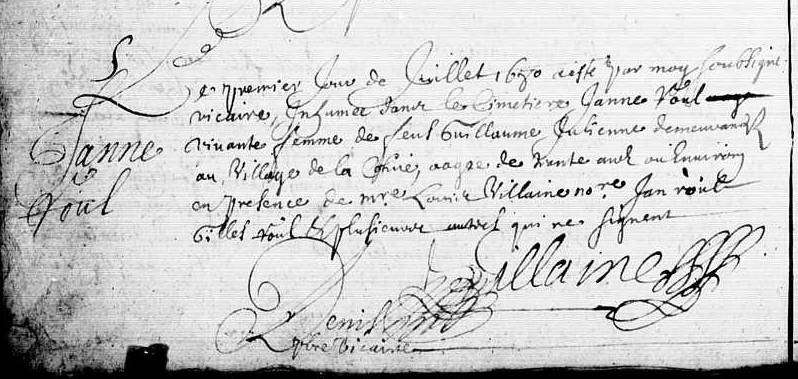 S
Janne
Roul
Le premier Jour de Juillet 1670 a esté par moy soubsigné
vicaire, Inhumée dans le Cimetiere Janne Roul
vivante femme de feu Guillaume Julienne demeurante
au Village de la aagée de trante ans ou Environ
en presence de mre Louis Villaine nore Jan roul
Gilles roul & plusieurs autres qui ne signent
Villaine
Denis
pbre Vicaire